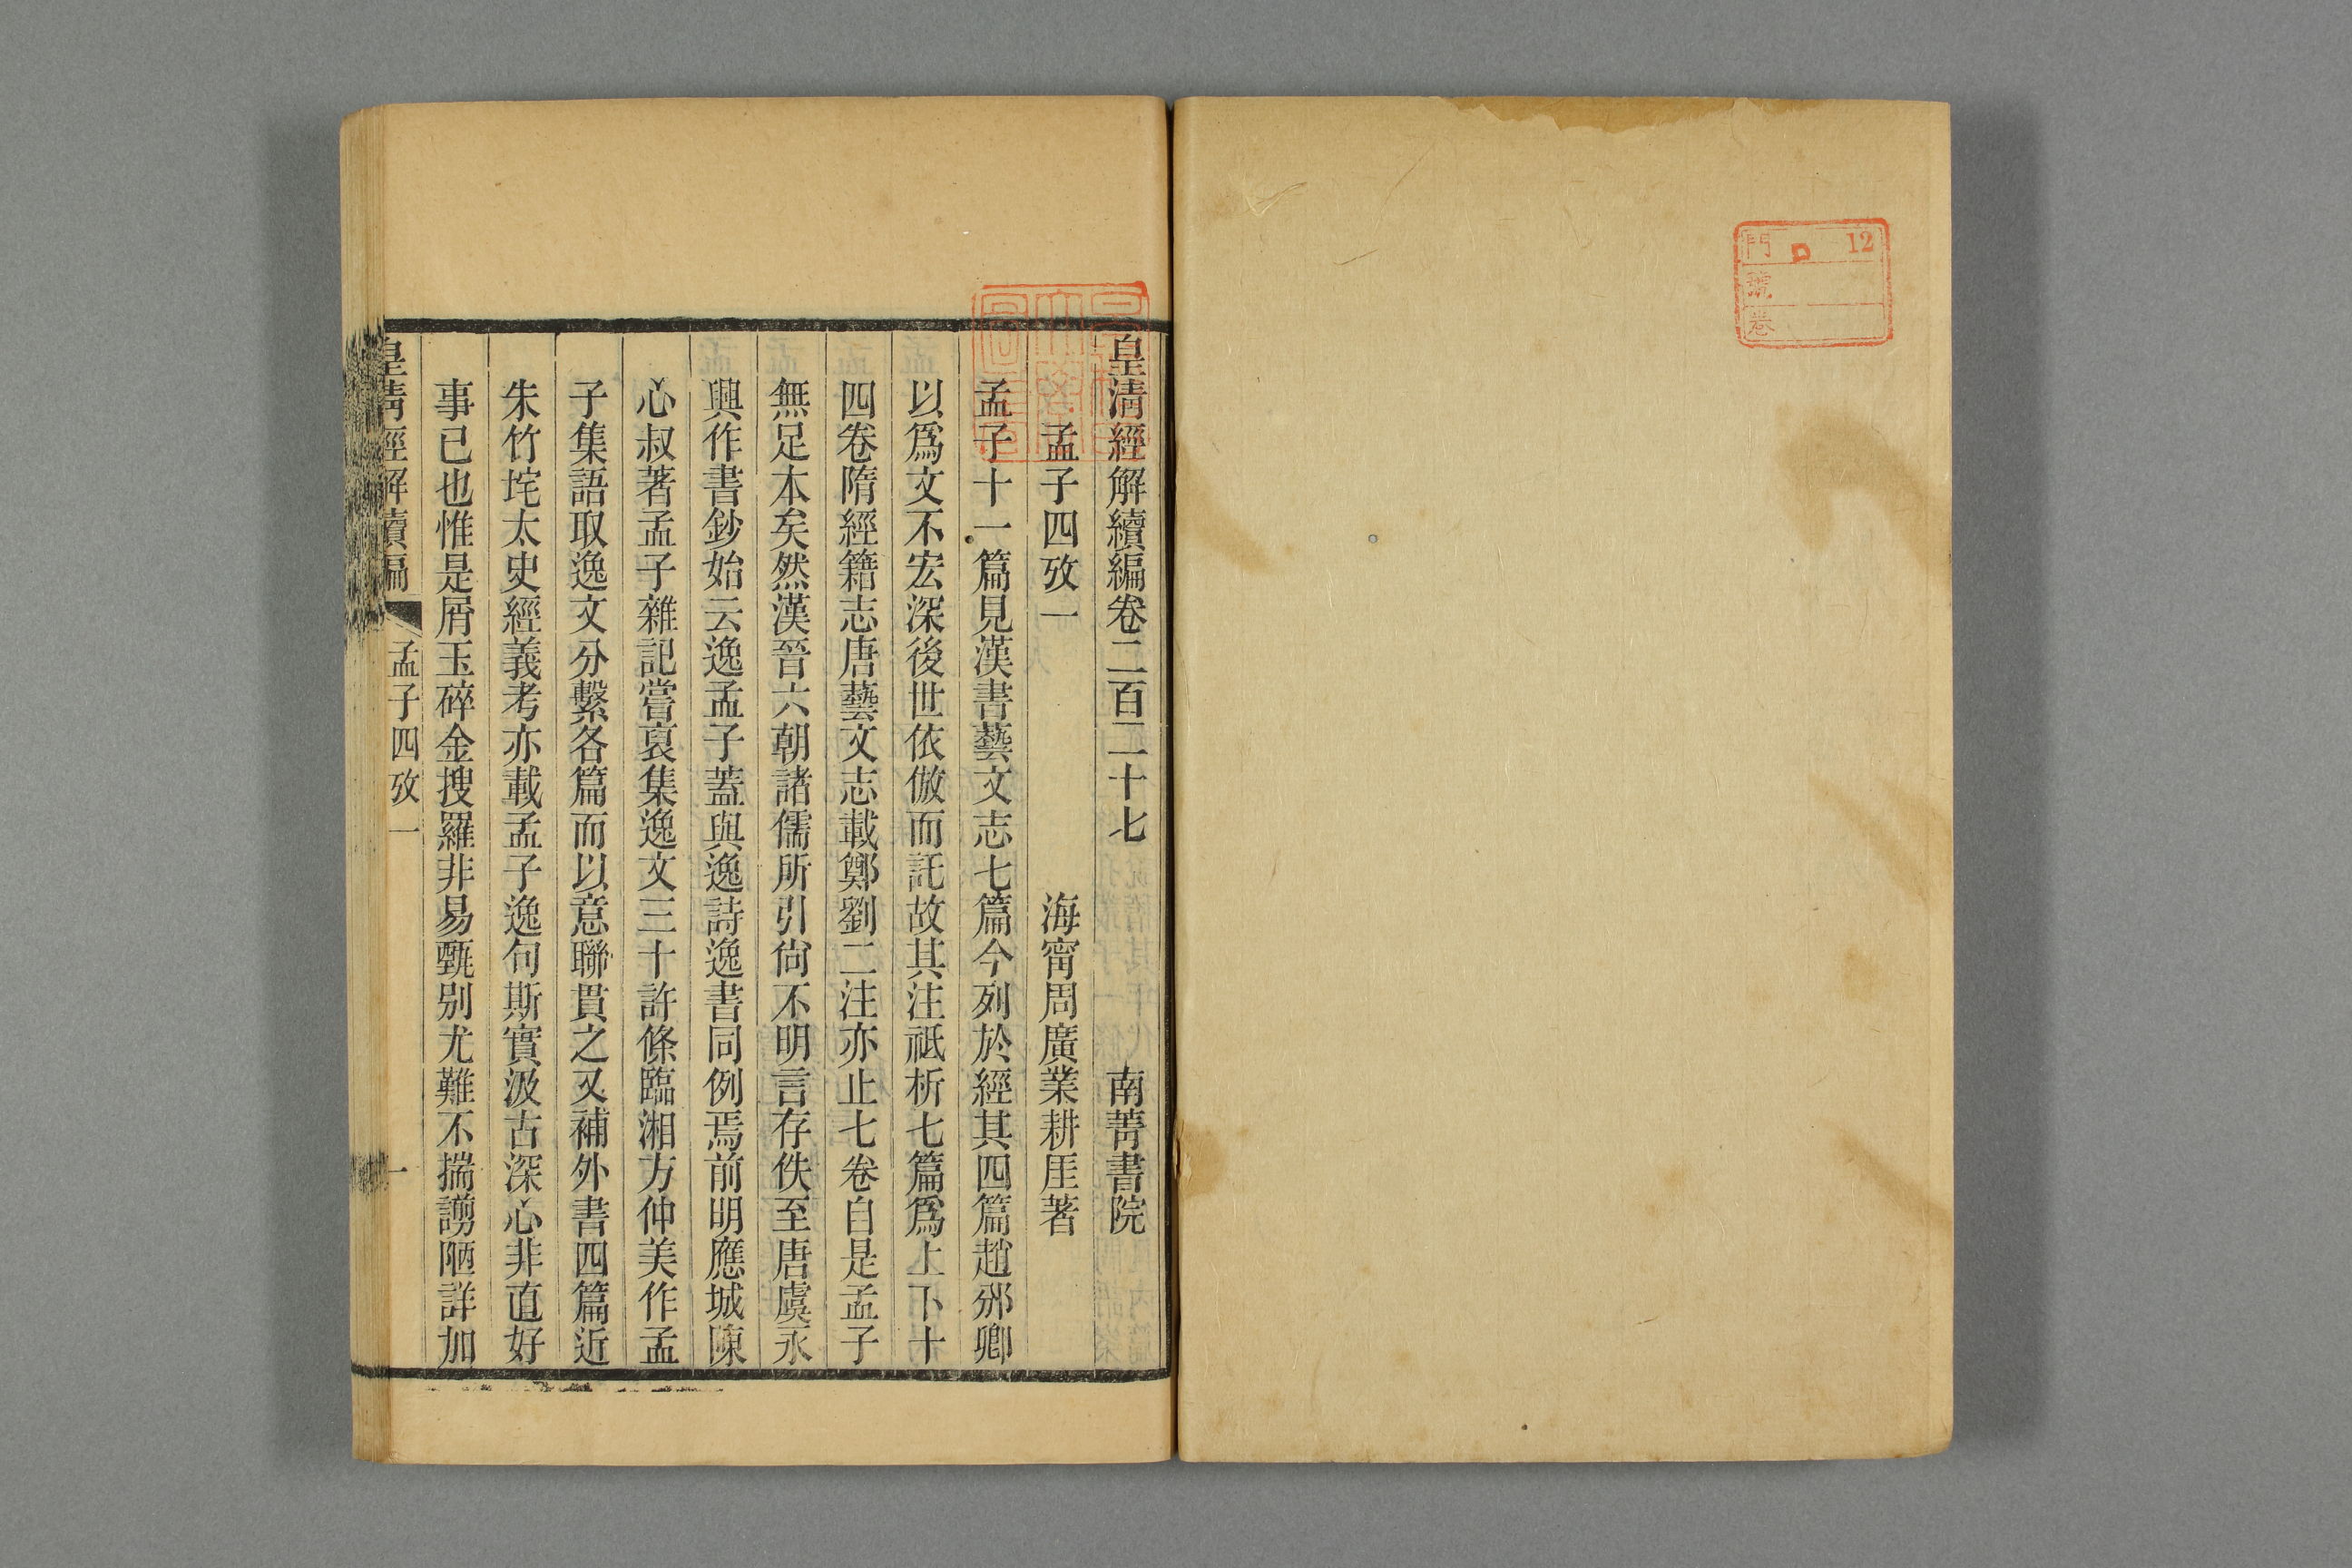 12
門
號
卷
皇清經解續編卷二百二十七 南菁書院
孟子四攷一 海甯周廣業耕厓著
孟子十一篇見漢書藝文志七篇今列於經其四篇趙邠卿
以爲文不宏深後世依倣而託故其注祗析七篇爲上下十
四卷隋經籍志唐藝文志載鄭劉二注亦止七卷自是孟子
無足本矣然漢晉六朝諸儒所引尙不明言存佚至唐虞永
興作書鈔始云逸孟子蓋與逸詩逸書同例焉前明應城陳
心叔著孟子雜記嘗裒集逸文三十許條臨湘方仲美作孟
子集語取逸文分繫各篇而以意聯貫之又補外書四篇近
朱竹垞太史經義考亦載孟子逸句斯實汲古深心非直好
事已也惟是屑玉碎金搜羅非易甄別尤難不揣譾陋詳加
皇清經解續編 孟子四攷一 一